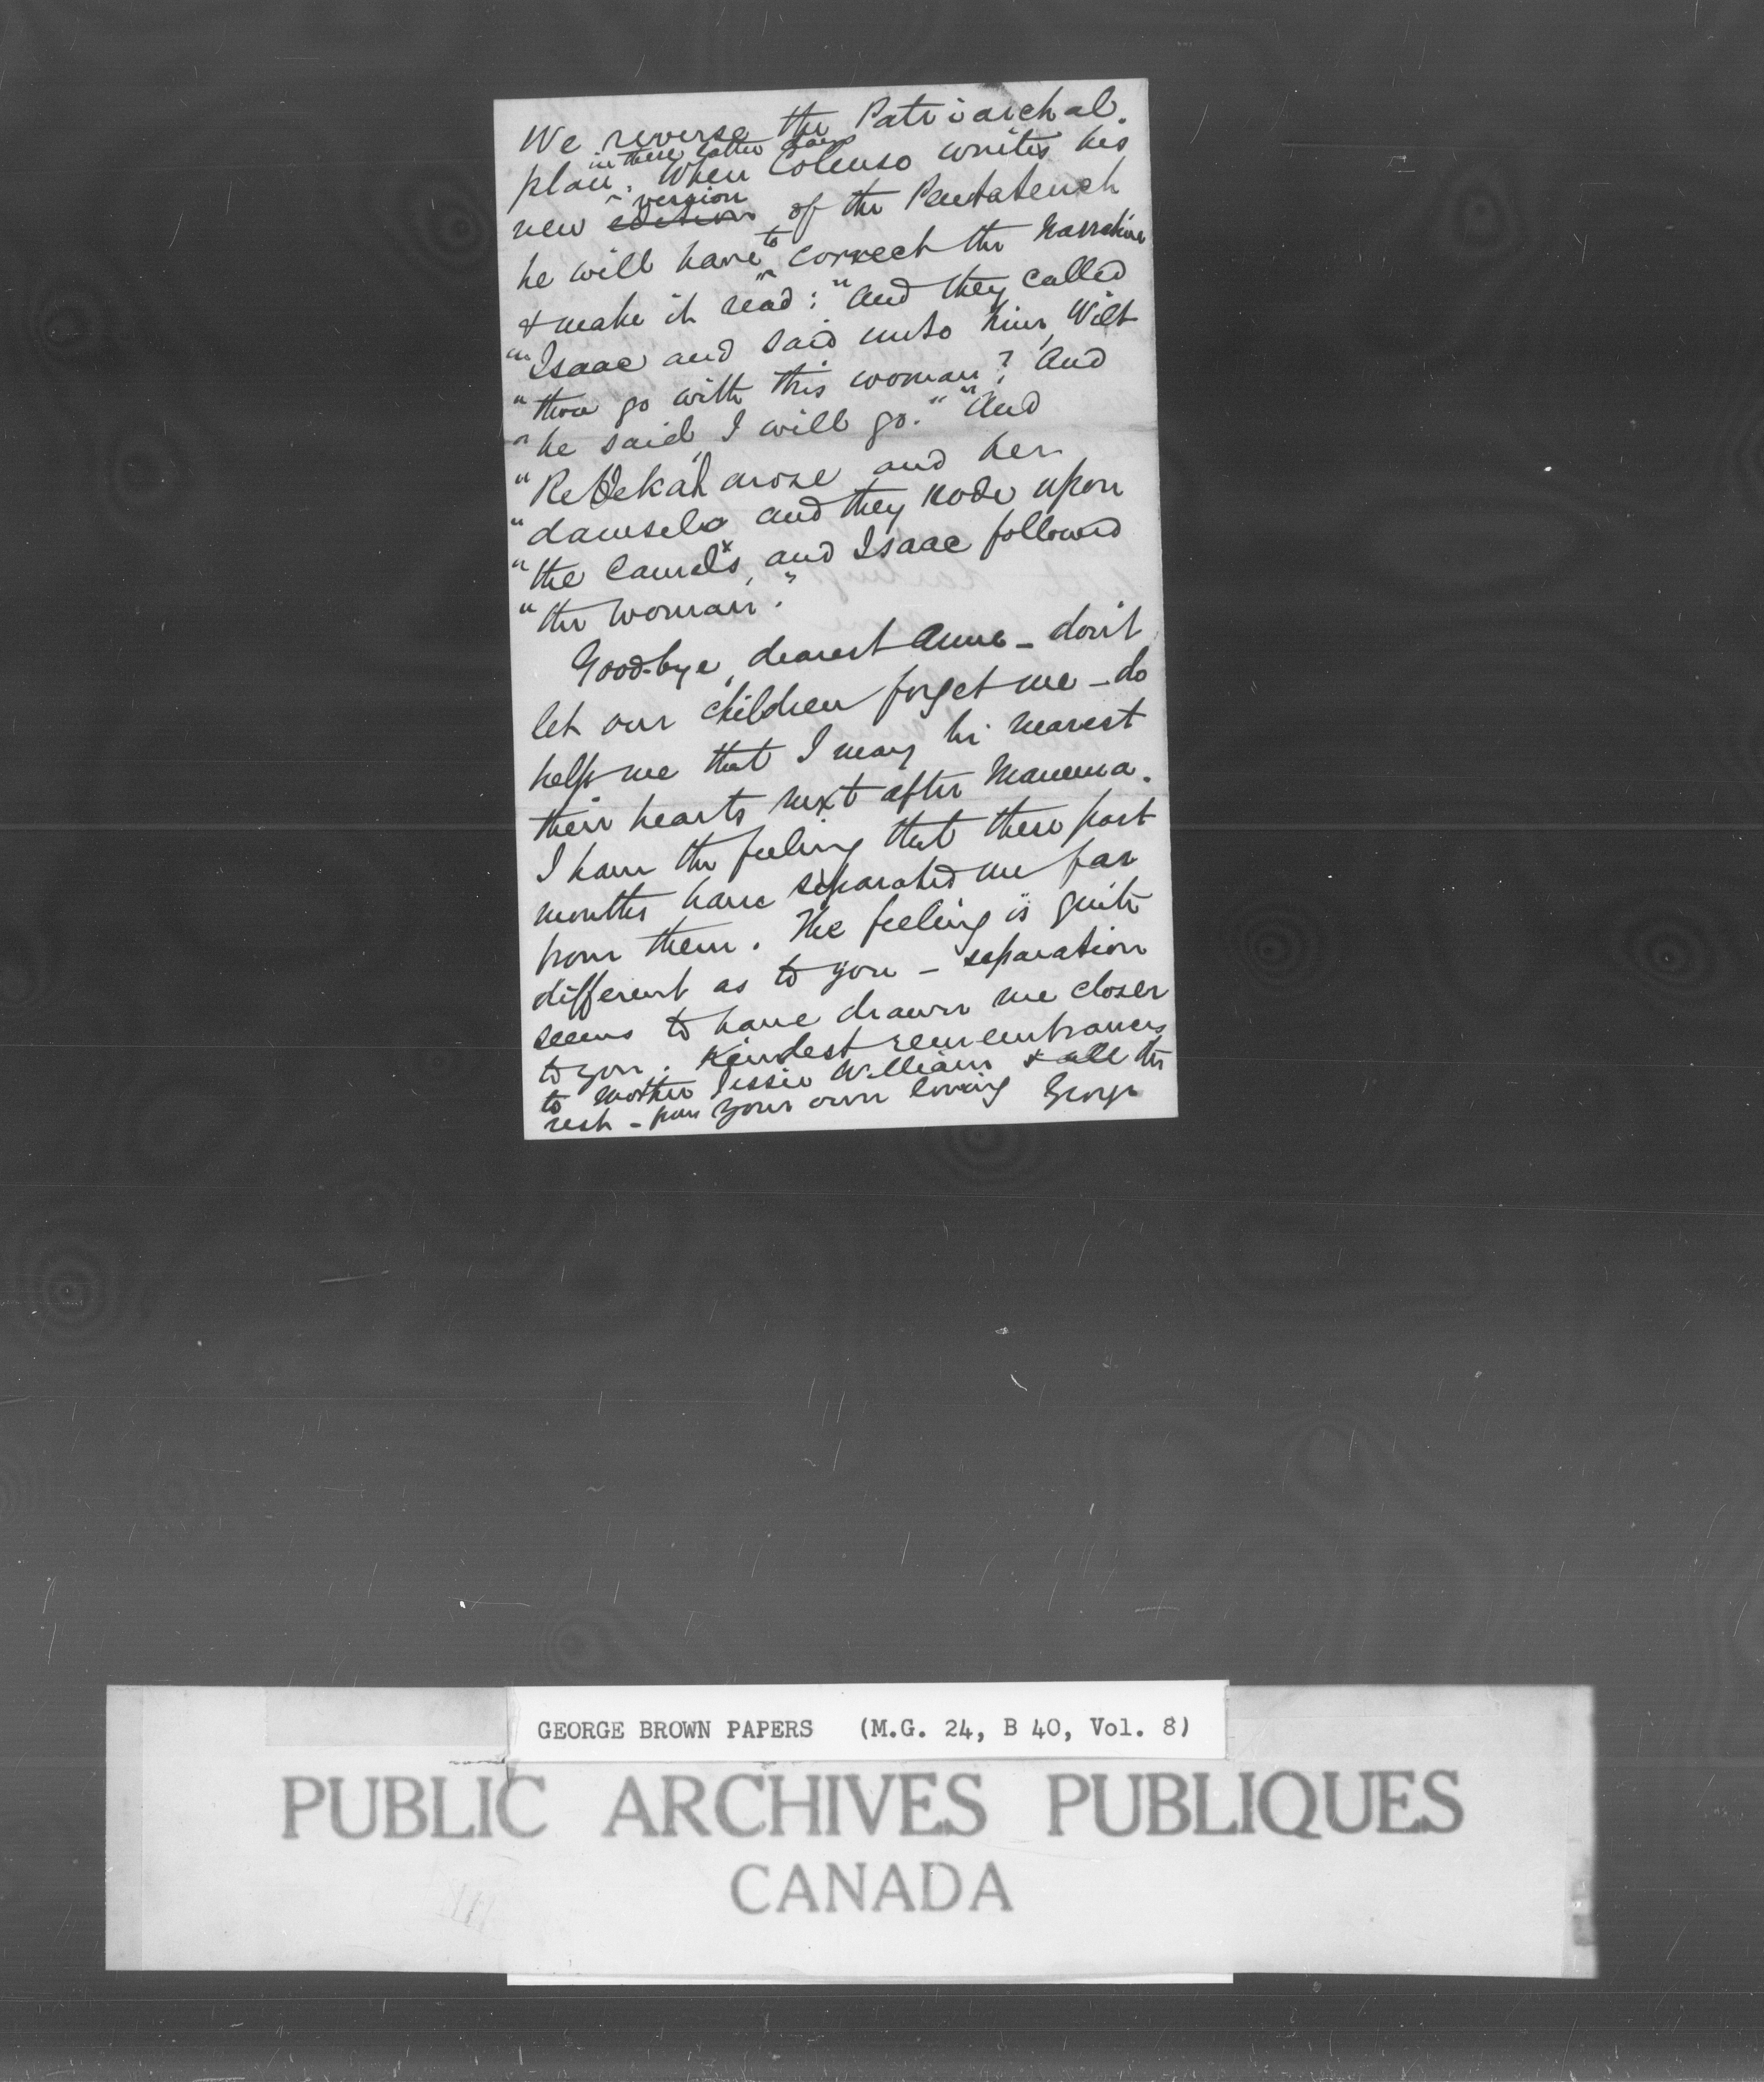 We reverse the Patriarchal
in these latter days
plan. When Colenso writes his
version
new edition of the Pentateuch
to
he will have correct the narrative
& make it read: "And they called
"Isaac and said unto him, Wilt
"thou go with this woman? And
"he said, I will go." "And
"Rebekah arose and her
"damsels and they rode upon
"the Camels, and Isaac followed
"the woman."
Good-bye, dearest Anne - don't
let our children forget me - do
help me that I may be nearest
their hearts next after Mamma.
I have the feeling that these past
months have separated me far
from them. The feeling is quite
different as to you - separation
seems to have drawn me closer
to you. Kindest remembrances
to Mother Jessie William & all the
rest - from your own loving George
GEORGE BROWN PAPERS (M.G. 24, B 40, Vol. 8)
PUBLIC ARCHIVES PUBLIQUES
CANADA